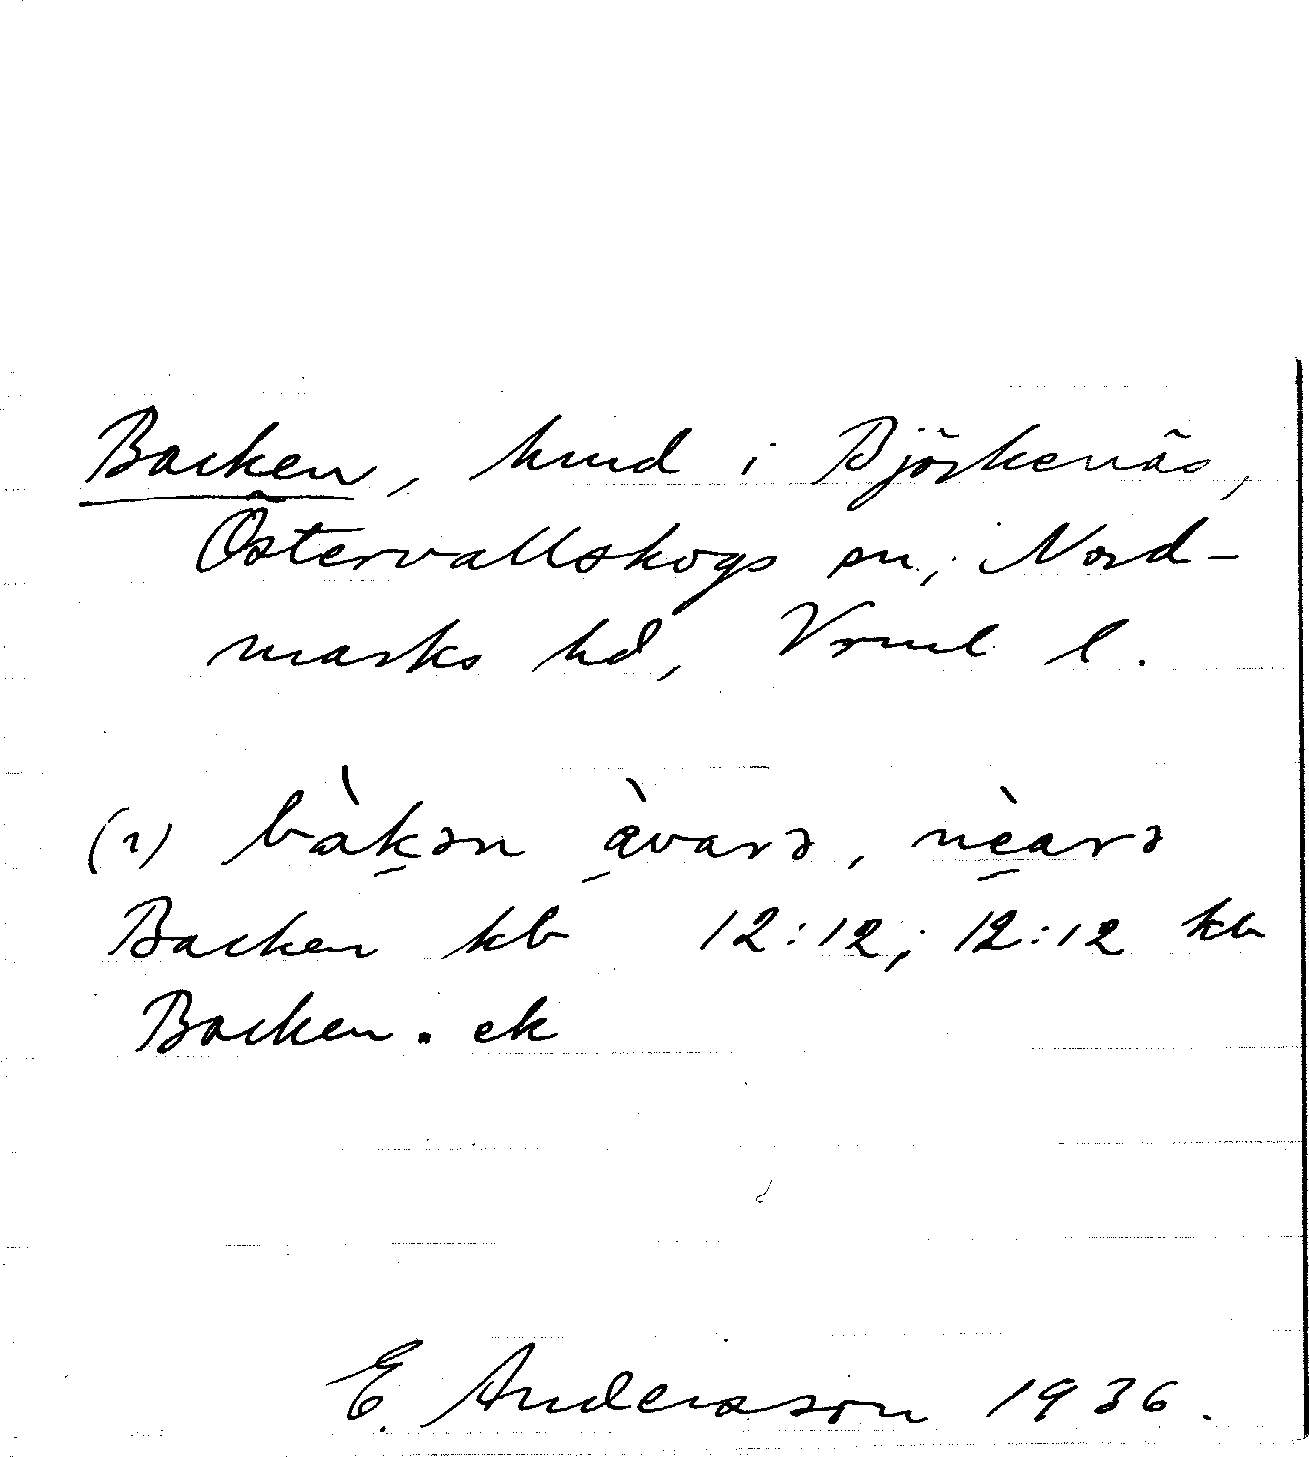 Backen, hmd i Björkenäs,
Östervallskogs sn, Nord-
marks hd, Vrml l.
(1) bàkən àvarə, nèarə
Backen kb 12:12; 12:12 kb
Backen. ek
E. Andersson 1936.